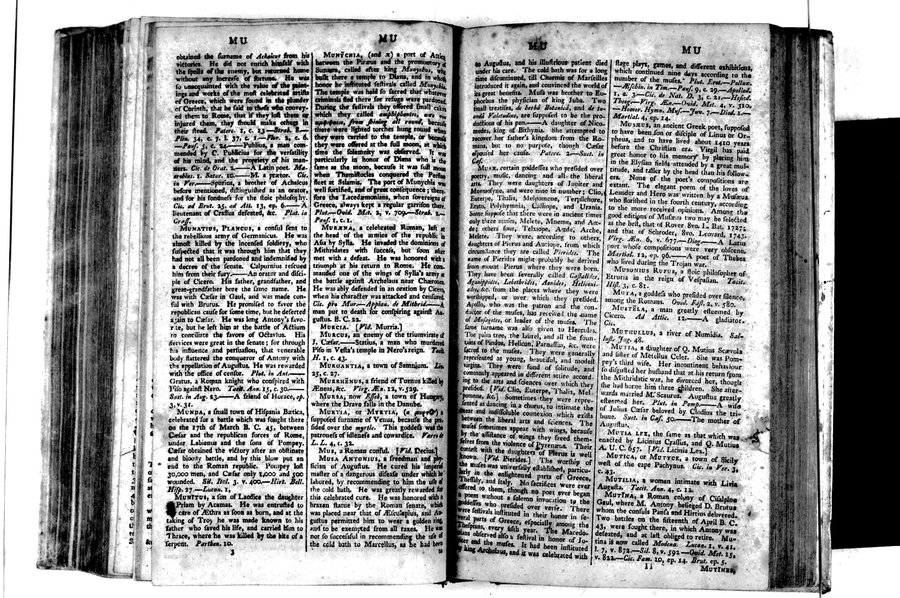 MU
obtained the surname of Achaicus from his
victories. He did not enrich himself with
the spoils of the enemy, but returned home
without any increase of fortune. He was
so unacquainted with the value of the paint-
ings and works of the most celebrated artists
of Greece, which were found in the plunder
of Corinth, that he said to those who convey-
ed them to Rome, that if they lost them or
injured them, they should make others in
their stead. Paterc. 1, c. 13.—Strab. 8.—
Plin. 34, c. 7. l. 37, c. 1.—Flor. 2, c. 6.
—Paus. 5, c. 24.—Publius, a man com-
mended by C. Publicius for the versatility
of his mind, and the propriety of his man-
ners. Cic. de Orat. 2.—A Latin poet. Ma-
crobius. 1. Satur. 10.—M. a prætor. Cic.
in Ver.—Spurius, a brother of Achaicus
before mentioned, distinguished as an orator,
and for his fondness for the stoic philosophy.
Cic. ad Brut. 25. ad Att. 13, ep. 6.—A
lieutenant of Crassus defeated, &c. Plut. in
Crass.
MUNATIUS, PLANCUS, a consul sent to
the rebellious army of Germanicus. He was
almost killed by the incensed soldiery, who
suspected that it was through him that they
had not all been pardoned and indemnified by
a decree of the senate. Calpurnius rescued
him from their fury.—An orator and disci-
ple of Cicero. His father, grandfather, and
great-grandfather bore the same name. He
was with Cæsar in Gaul, and was made con-
sul with Brutus. He promised to favor the
republican cause for some time, but he deserted
again to Cæsar. He was long Antony's favo-
rite, but he left him at the battle of Actium
to conciliate the favors of Octavius. His
services were great in the senate; for through
his influence and persuasion, that venerable
body flattered the conqueror of Antony with
the appellation of Augustus. He was rewarded
with the office of censor. Plut. in Ant.—
Gratus, a Roman knight who conspired with
Piso against Nero. Tacit. Ann. 15, c. 30.—
Suet. in Aug. 23.—A friend of Horace, ep.
3, v. 31.
MUNDA, a small town of Hispania Bætica,
celebrated for a battle which was fought there
on the 17th of March B. C. 45, between
Cæsar and the republican forces of Rome,
under Labienus and the sons of Pompey.
Cæsar obtained the victory after an obstinate
and bloody battle, and by this blow put an
end to the Roman republic. Pompey lost
30,000 men, and Cæsar only 1,000 and 500
wounded. Sil. Ital. 3, v. 400.—Hirt. Bell.
Hisp. 27.—Lucan. 1.
MUNITUS, a son of Laodice the daughter
of Priam by Acamas. He was entrusted to
the care of Æthra as soon as born, and at the
taking of Troy he was made known to his
father who saved his life, and carried him to
Thrace, where he was killed by the bite of a
serpent. Parthen. 10.
3
MU
MUNYCHIA, (and æ) a port of Attica
between the Piræus and the promontory of
Sunium, called after king Munychus, who
built there a temple to Diana, and in whose
honor he instituted festivals called Munychia.
The temple was held so sacred that whatever
criminals fled there for refuge were pardoned.
During the festivals they offered small cakes
which they called amphiphontes,
from shining all round, because
there were lighted torches hung round when
they were carried to the temple, or because
they were offered at the full moon, at which
time the solemnity was observed. It was
particularly in honor of Diana who is the
same as the moon, because it was full moon
when Themistocles conquered the Persian
fleet at Salamis. The port of Munychia was
well fortified, and of great consequence; there-
fore the Lacedæmonians, when sovereigns of
Greece, always kept a regular garrison there.
Plut.—Ovid. Met. 2, v. 709.—Strab. 2.—
Paus. 1, c. 1.
MURÆNA, a celebrated Roman, left at
the head of the armies of the republic in
Asia by Sylla. He invaded the dominions of
Mithridates with success, but soon after
met with a defeat. He was honored with a
triumph at his return to Rome. He com-
manded one of the wings of Sylla's army at
the battle against Archelaus near Chæronea.
He was ably defended in an oration by Cicero,
when his character was attacked and censured.
Cic. pro Mur.—Appian. de Mithrid.—A
man put to death for conspiring against Au-
gustus. B. C. 22.
MURCIA. [Vid. Murtia.]
MURCUS, an enemy of the triumvirate of
J. Cæsar.—Statius, a man who murdered
Piso in Vesta's temple in Nero's reign. Tacit.
H. 1, c. 43.
MURGANTIA, a town of Samnium. Liv.
25, c. 27.
MURRHENUS, a friend of Turnus killed by
Æneas, &c. Virg. Æn. 12, v. 529.
MURSA, now Essek, a town of Hungary,
where the Drave falls in the Danube.
MURTIA, or MYRTEA,
supposed surname of Venus, because she pre-
sided over the myrtle. This goddess was the
patroness of idleness and cowardice. Varro de
L. L. 4, c. 32.
MUS, a Roman consul. [Vid. Decius.]
MUSA ANTONIUS, a freedman and phy-
sician of Augustus. He cured his imperial
master of a dangerous disease under which he
labored, by recommending to him the use of
the cold bath. He was greatly rewarded for
this celebrated cure. He was honored with a
brazen statue by the Roman senate, which
was placed near that of Æsculapius, and Au-
gustus permitted him to wear a golden ring,
and to be exempted from all taxes. He was
not so successful in recommending the use of
the cold bath to Marcellus, as he had been
MU
to Augustus, and his illustrious patient died
under his care. The cold bath was for a long
time discontinued, till Charmis of Marseilles
introduced it again, and convinced the world of
its great benefits. Musa was brother to Eu-
phorbus the physician of king Juba. Two
small treatises, de herbâ Botanicâ, and de tu-
endâ Valetudine, are supposed to be the pro-
ductions of his pen.—A daughter of Nico-
medes, king of Bithynia. She attempted to
recover her father's kingdom from the Ro-
mans, but to no purpose, though Cæsar
espoused her cause. Paterc. 2.—Suet. in
Cæs.
MUSÆ, certain goddesses who presided over
poetry, music, dancing, and all the liberal
arts. They were daughters of Jupiter and
Mnemosyne, and were nine in number; Clio,
Euterpe, Thalia, Melpomene, Terpsichore,
Erato, Polyhymnia, Calliope, and Urania.
Some suppose that there were in ancient times
only three muses, Melete, Mneme, and Aoe-
de; others four, Telxiope, Aoede, Arche,
Melete. They were, according to others,
daughters of Pierus and Antiope, from which
circumstance they are called Pierides. The
name of Pierides might probably be derived
from mount Pierus where they were born.
They have been severally called Castalides,
Aganippides, Lebethrides, Aonides, Heliconi-
ades, &c. from the places where they were
worshipped, or over which they presided.
Apollo, who was the patron and the con-
ductor of the muses, has received the name
of Musagetes, or leader of the muses. The
same surname was also given to Hercules.
The palm tree, the laurel, and all the foun-
tains of Pindus, Helicon, Parnassus, &c. were
sacred to the muses. They were generally
represented as young, beautiful, and modest
virgins. They were fond of solitude, and
commonly appeared in different attire accord-
ing to the arts and sciences over which they
presided. [Vid. Clio, Euterpe, Thalia, Mel-
pomene, &c.] Sometimes they were repre-
sented as dancing in a chorus, to intimate the
near and indissoluble connexion which exists
between the liberal arts and sciences. The
muses sometimes appear with wings, because
by the assistance of wings they freed them-
selves from the violence of Pyrenæus. Their
contest with the daughters of Pierus is well
known. [Vid. Pierides.] The worship of
the muses was universally established, particu-
larly in the enlightened parts of Greece,
Thessaly, and Italy. No sacrifices were ever
offered to them, though no poet ever began
a poem without a solemn invocation to the
goddesses who presided over verse. There
were festivals instituted in their honor in se-
veral parts of Greece, especially among the
Thespians, every fifth year. The Macedo-
nians observed also a festival in honor of Ju-
piter and the muses. It had been instituted
by king Archelaus, and it was celebrated with
MU
stage plays, games, and different exhibitions,
which continued nine days according to the
number of the muses. Plut. Erot.—Pollux.
—Æschin. in Tim.—Paus. 9, c. 29.—Apollod.
1, c. 3.—Cic. de Nat. D. 3, c. 21.—Hesiod.
Theog.—Virg. Æn.—Ovid. Met. 4, v. 310.
—Homer. Hymn. Mus.—Juv. 7.—Diod. 1.—
Martial. 4, ep. 14.
MUSÆUS, an ancient Greek poet, supposed
to have been son or disciple of Linus or Or-
pheus, and to have lived about 1410 years
before the Christian era. Virgil has paid
great honor to his memory by placing him
in the Elysian fields attended by a great mul-
titude, and taller by the head than his follow-
ers. None of the poet's compositions are
extant. The elegant poem of the loves of
Leander and Hero was written by a Musæus
who florished in the fourth century, according
to the more received opinions. Among the
good editions of Musæus two may be selected
as the best, that of Rover 8vo. L. Bat. 1727;
and that of Schroder, 8vo. Leovard, 1743.
Virg. Æn. 6, v. 677.—Diog.—A Latin
poet whose compositions were very obscene.
Martial. 12, ep. 96.—A poet of Thebes
who lived during the Trojan war.
MUSONIUS RUFUS, a stoic philosopher of
Etruria in the reign of Vespasian. Tacit.
Hist. 3, c. 81.
MUTA, a goddess who presided over silence
among the Romans. Ovid. Fast. 2, v. 580.
MUSTELA, a man greatly esteemed by
Cicero. Ad Attic. 12.—A gladiator.
Cic.
MUTHULLUS, a river of Numidia. Sal-
lust. Jug. 48.
MUTIA, a daughter of Q. Mutius Scævola
and sister of Metellus Celer. She was Pom-
pey's third wife. Her incontinent behaviour
so disgusted her husband that at his return from
the Mithridatic war, he divorced her, though
she had borne him three children. She after-
wards married M. Scaurus. Augustus greatly
esteemed her. Plut. in Pomp.—A wife
of Julius Cæsar beloved by Clodius the tri-
bune. Suet. in Cæs. 50.—The mother of
Augustus.
MUTIA LEX, the same as that which was
enacted by Licinius Crassus, and Q. Mutius
A. U. C. 657. [Vid. Licinia Lex.]
MUTICA, or MUTYCE, a town of Sicily
west of the cape Pachynus. Cic. in Ver. 3,
c. 43.
MUTILIA, a woman intimate with Livia
Augusta. Tacit. Ann. 4, c. 12.
MUTINA, a Roman colony of Cisalpine
Gaul, where M. Antony besieged D. Brutus
whom the consuls Pansa and Hirtius delivered.
Two battles on the fifteenth of April B. C.
43, were fought there, in which Antony was
defeated, and at last obliged to retire. Mu-
tina is now called Modena. Lucan. 1, v. 41.
l. 7, v. 872.—Sil. 8, v. 592.—Ovid. Met. 15,
v. 822.—Cic. Fam. 10, ep. 14. Brut. ep. 5.
I i
MUTINES,